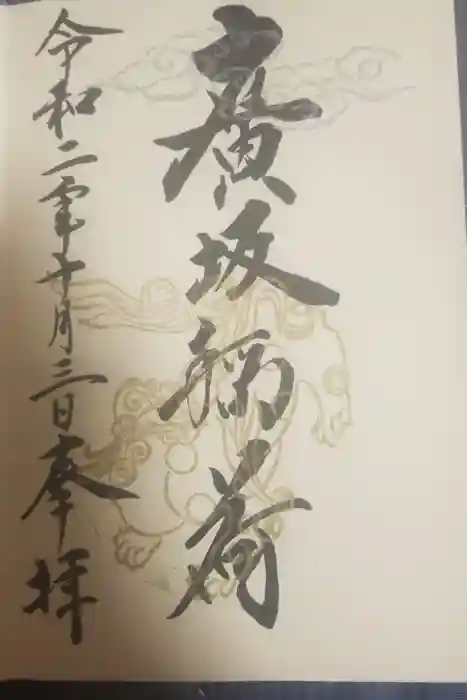 廣坂稲荷
令和二年十月三日奉拝